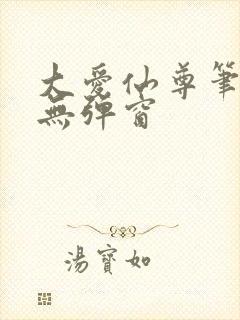 大愛仙尊筆
無彈窗
湯寶如